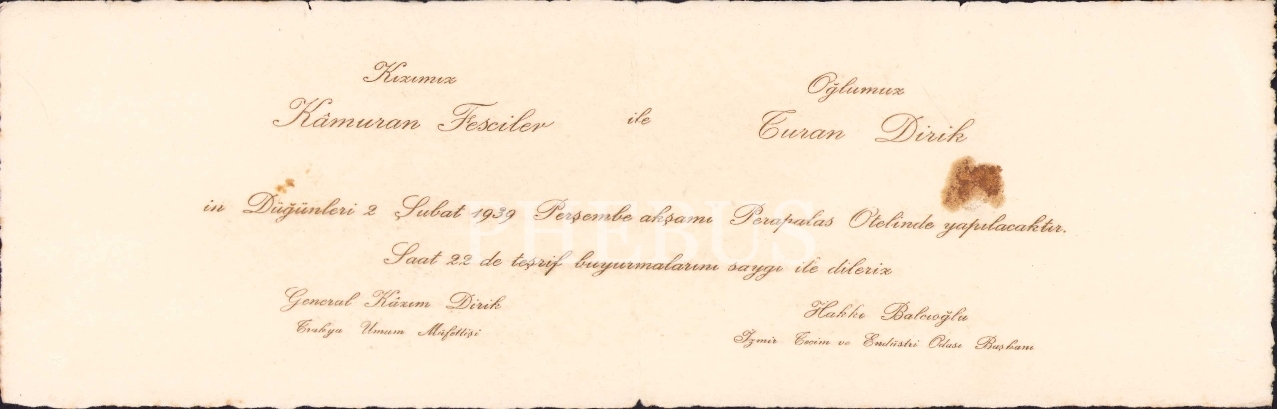 Kızımız
Oğlumuz
Kâmuran Fesciler ile Turan Dirik
in Düğünleri 2 Şubat 1939 Perşembe akşamı Perapalas Otelinde yapılacaktır.
PHEBUS
Saat 22 de teşrif buyurmalarını saygı ile dileriz
General Kâzım Dirik
Trakya Umum Müfettişi
Hakkı Balcıoğlu
İzmir Tecim ve Endüstri Odası Başkanı